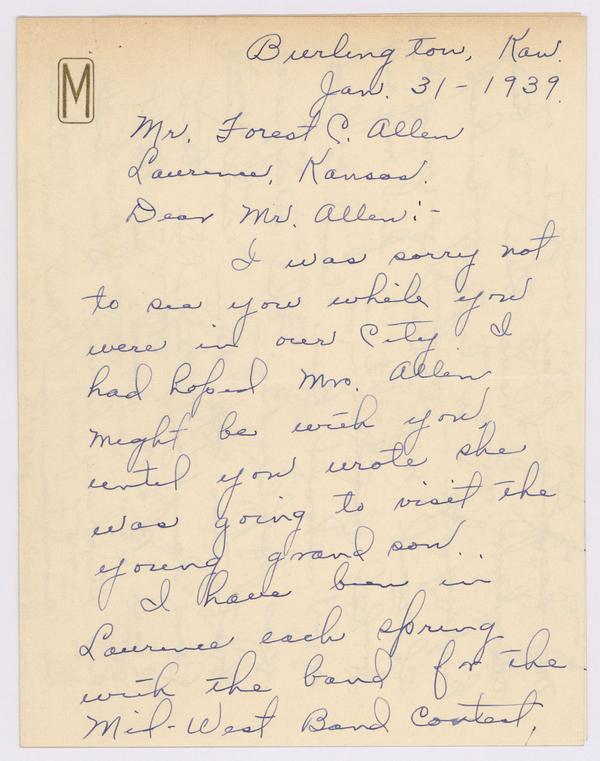 M
Burlington, Kan.
Jan. 31-1939.
Mr. Forest C. Allen
Laurence, Kansas.
Dear Mr. Allen:-
I was sorry not
to see you while you
were in our City. I
had hoped Mrs. Allen
might be with you,
until you wrote she
was going to visit the
young grand son..
I have been in
Laurence each spring
with the band for the
Mid-West Band Contest,